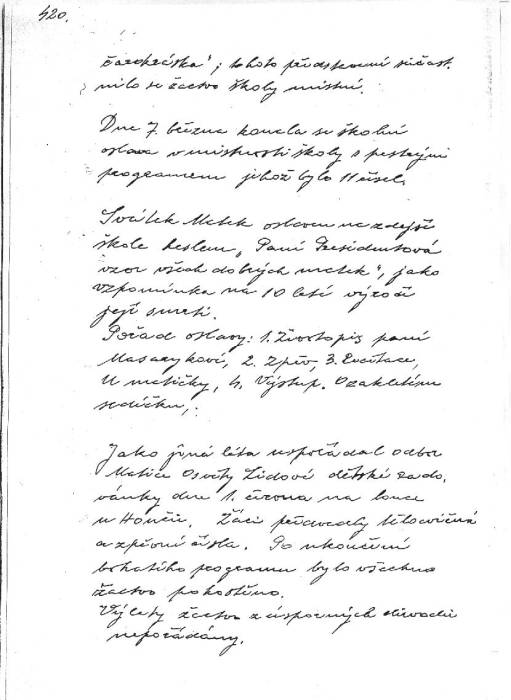 420.
čarodějka"; tohoto představení súčast-
nilo se žactvo školy místní.
Dne 7. března konala se školní
oslava v místnosti školy s pestrým
programem jehož bylo 11 čísel.
Svátek Matek oslaven na zdejší
škole heslem „Paní Presidentová
vzor všech dobrých matek", jako
vzpomínka na 10 letí výročí
její smrti.
Pořad oslavy: 1. Životopis paní
Masarykové, 2. Zpěv, 3. Recitace,
U matičky, 4. Výstup. O zakletém
srdíčku,.
Jako jiná léta uspořádal odbor
Matice Osvěty Lidové dětské rado-
vánky dne 1. června na louce
u Hončic. Žáci předvedly tělocvičná
a zpěvní čísla. Po ukončení
bohatého programu bylo všechno
žactvo pohostěno.
Výlety žactva z úsporných důvodů
nepořádány.